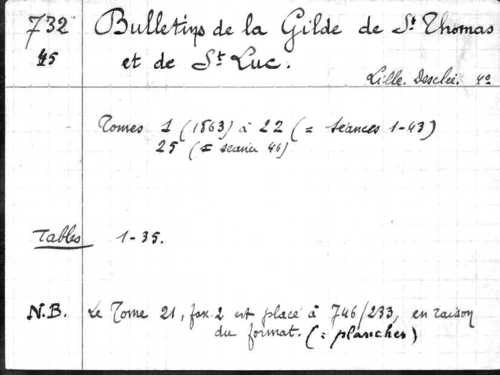 732 Bulletins de la Gilde de St Thomas
45 et de St Luc.
Lille. Desclée. 4º
Tomes 1 (1863) à 22 (= séances 1-43)
25 (= séance 46)
Tables 1-35.
N.B. Le Tome 21, fax. 2 est placé à 746/233, en raison
du format. (= planches)